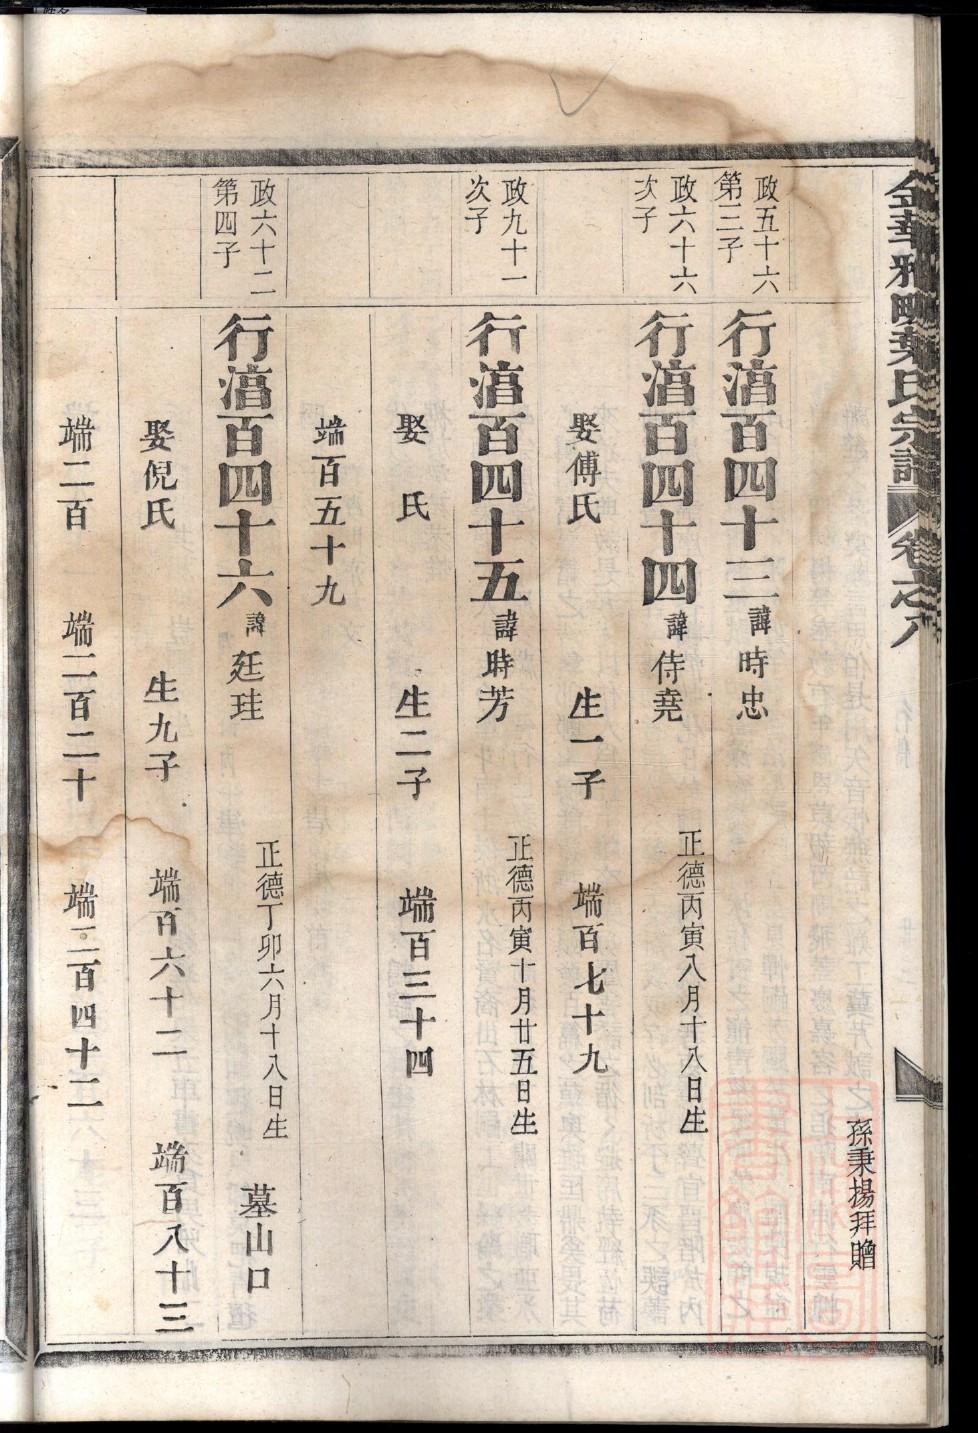 金華雅畈葉氏宗譜 卷之八
孫秉揚拜贈
政五十六
第三子
行濇百四十三 諱時忠
政六十六
次子
行濇百四十四 諱侍堯 正德丙寅八月十八日生
娶傅氏 生一子 端百七十九
政九十一
次子
行濇百四十五 諱時芳 正德丙寅十月廿五日生
娶 氏 生二子 端百三十四
端百五十九
政六十二
第四子
行濇百四十六 諱廷珪 正德丁卯六月十八日生 墓山口
娶倪氏 生九子 端百六十二 端百八十三
端二百 端二百二十 端二百四十二